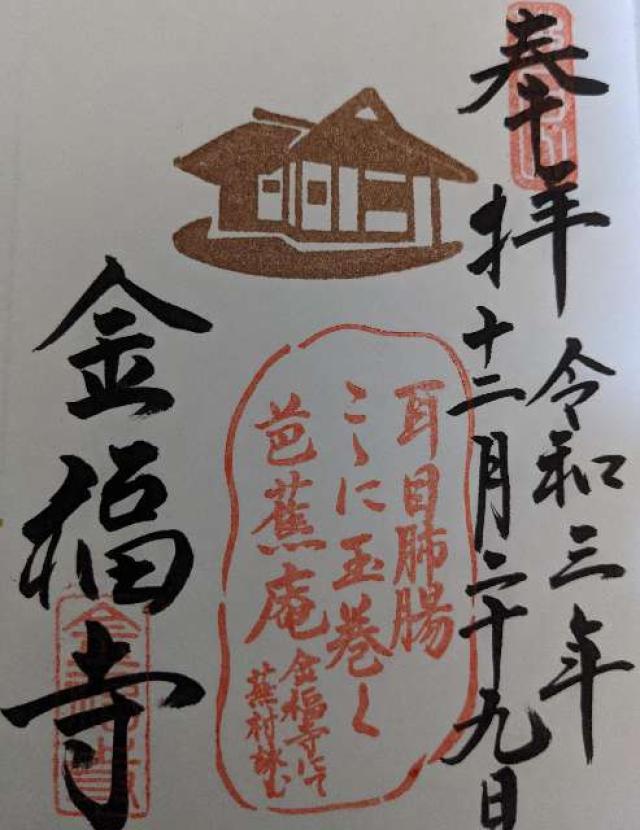 奉拝
令和三年
十二月二十九日
耳目肺腸
こゝに玉巻く
芭蕉庵
金福寺にて
蕪村詠む
金福寺